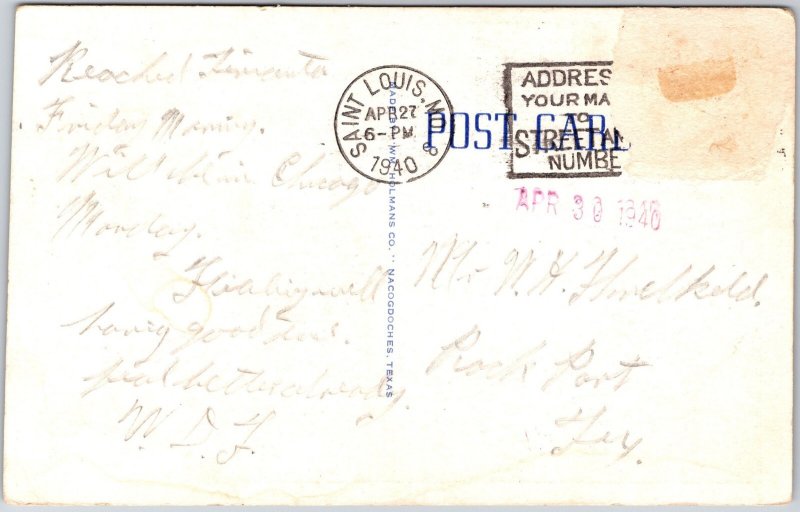 Reached
Friday Morning.
Will be in Chicago
Monday.
well
having good
feel better already
W. D. T.
SAINT LOUIS, MO.
APR 27
6-PM
1940
8
ADDRES
YOUR MA
TO
STREET AN
NUMBE
POST CARD
APR 30 1940
Mr. N. H. Threlkeld.
Rock Port
Tex.
HOLMANS CO., NACOGDOCHES, TEXAS